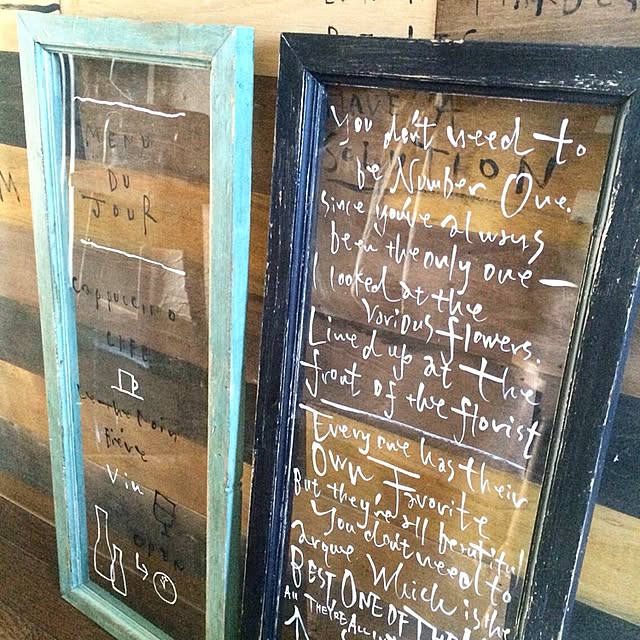 MENU
DU
JOUR
cappuccino
CAFE
Bière
Vin
OPEN
HAVE A
SOLUTION
You don't need to
be Number One.
since you've always
been the only one —
I looked at the
various flowers.
Lined up at the
front of the florist
Everyone has their
Own Favorite
But they're all beautiful
You don't need to
argue Which is the
BEST ONE OF THEM
All THEY'RE ALL